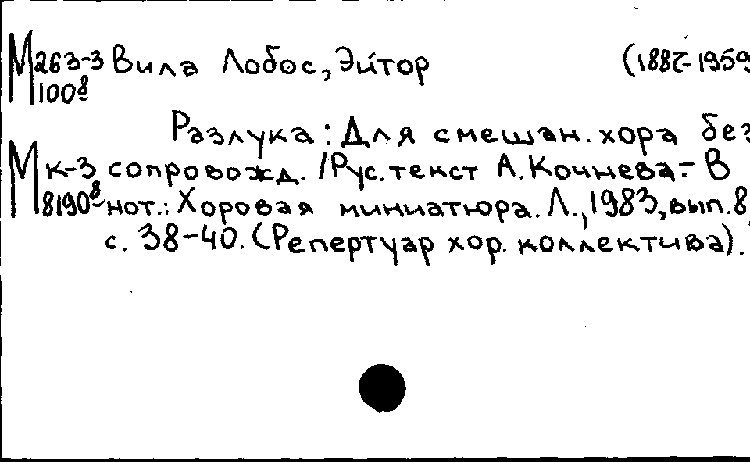 М263-3 Вила Лобос, Эйтор (1887-1959
100⁸
Разлука: Для смешан. хора без
М к-3 сопровожд. / Рус. текст А. Кочнева.- В
8190⁸ нот.: Хоровая миниатюра. Л., 1983, вып. 8,
с. 38-40. (Репертуар хор. коллектива).